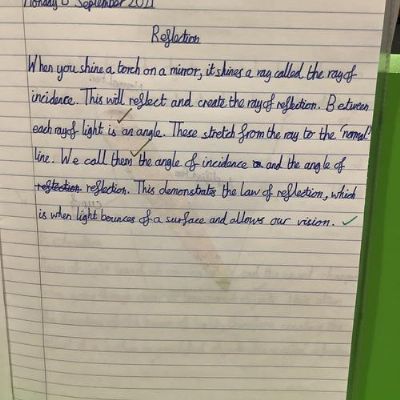 September 2021
Reflection
When you shine a torch on a mirror, it shines a ray called the ray of
incidence. This will reflect and create the ray of reflection. Between
each ray of light is an angle. These stretch from the ray to the 'normal'
line. We call them the angle of incidence and the angle of
reflection reflection. This demonstrates the law of reflection, which
is when light bounces of a surface and allows our vision.